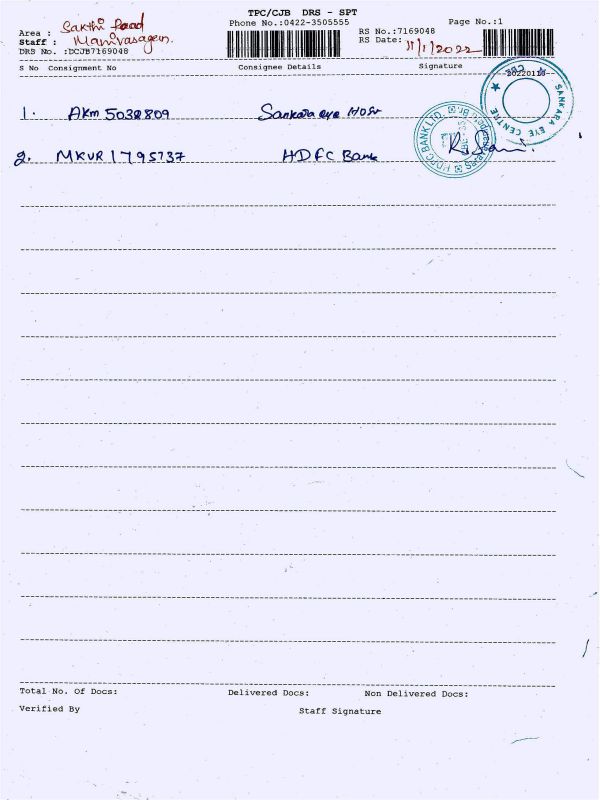 TPC/CJB DRS - SPT
Phone No.:0422-3505555
Page No.:1
Area : Sakthi Road
Staff : Manivasagem.
DRS No. :DCJB7169048
RS No.:7169048
RS Date: 11/1/2022
S No Consignment No Consignee Details Signature
20220118
SANKARA EYE CENTRE ★ CBE
1. AKM 5032809 Sankara eye HOSP
HDFC BANK LTD.
2. MKUR 1795737 HDFC Bank
Total No. Of Docs: Delivered Docs: Non Delivered Docs:
Verified By Staff Signature